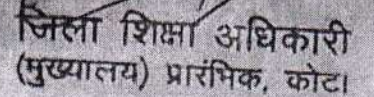 जिला शिक्षा अधिकारी
(मुख्यालय) प्रारंभिक, कोटा